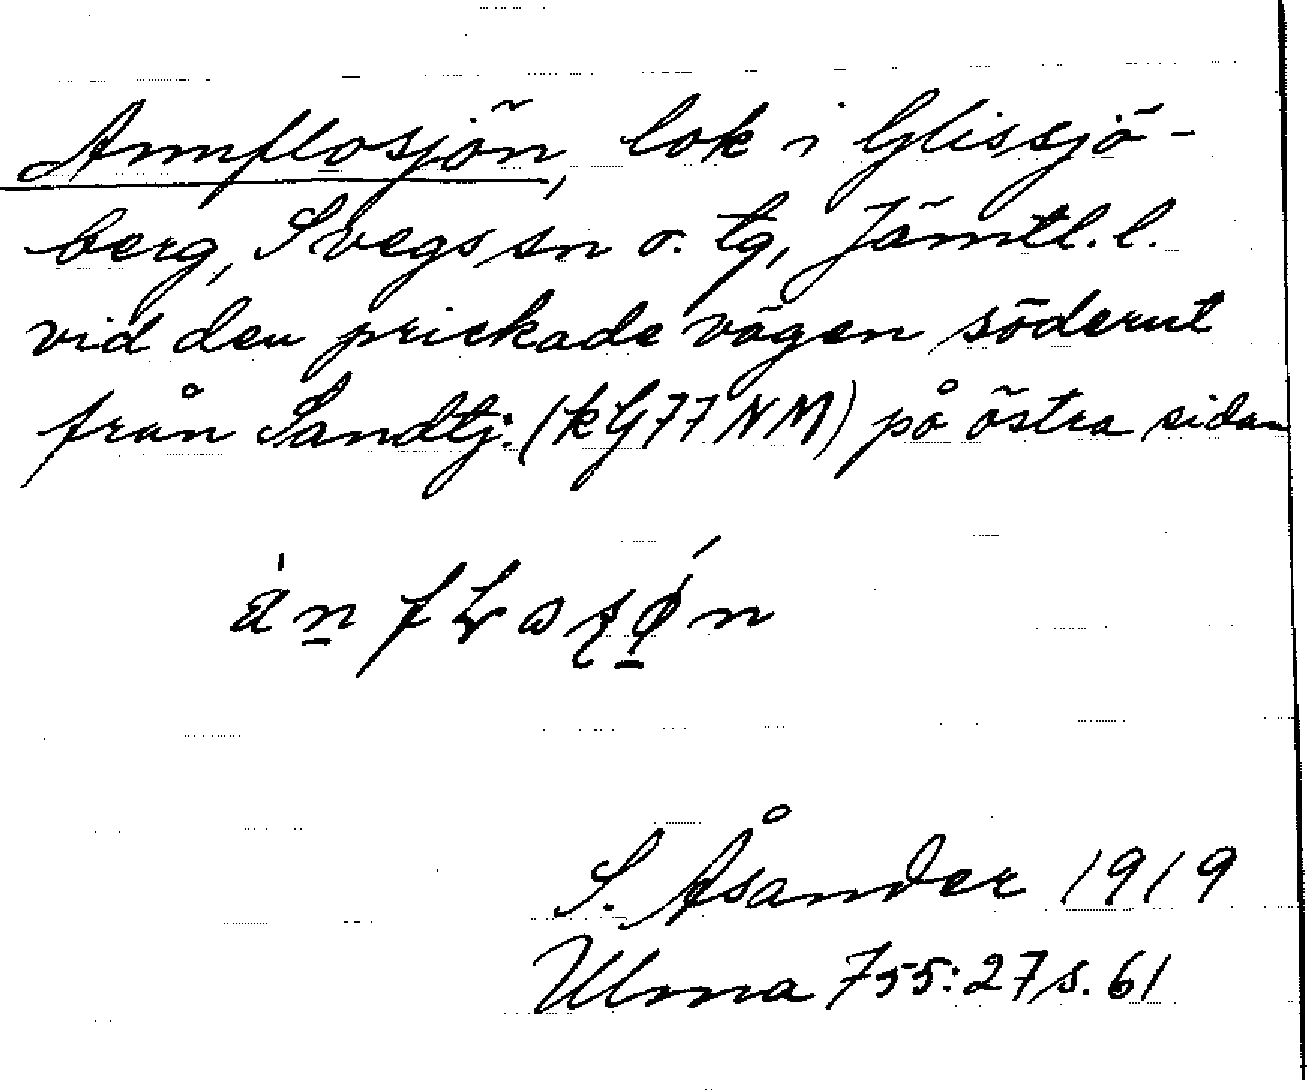 Annflosjön, lok i Glissjö-
berg, Svegs sn o. tg, Jämtl. l.
vid den prickade vägen söderut
från Sandtj. (k G 77 NM) på östra sidan
S. Åsander 1919
Ulma 755:27 s. 61